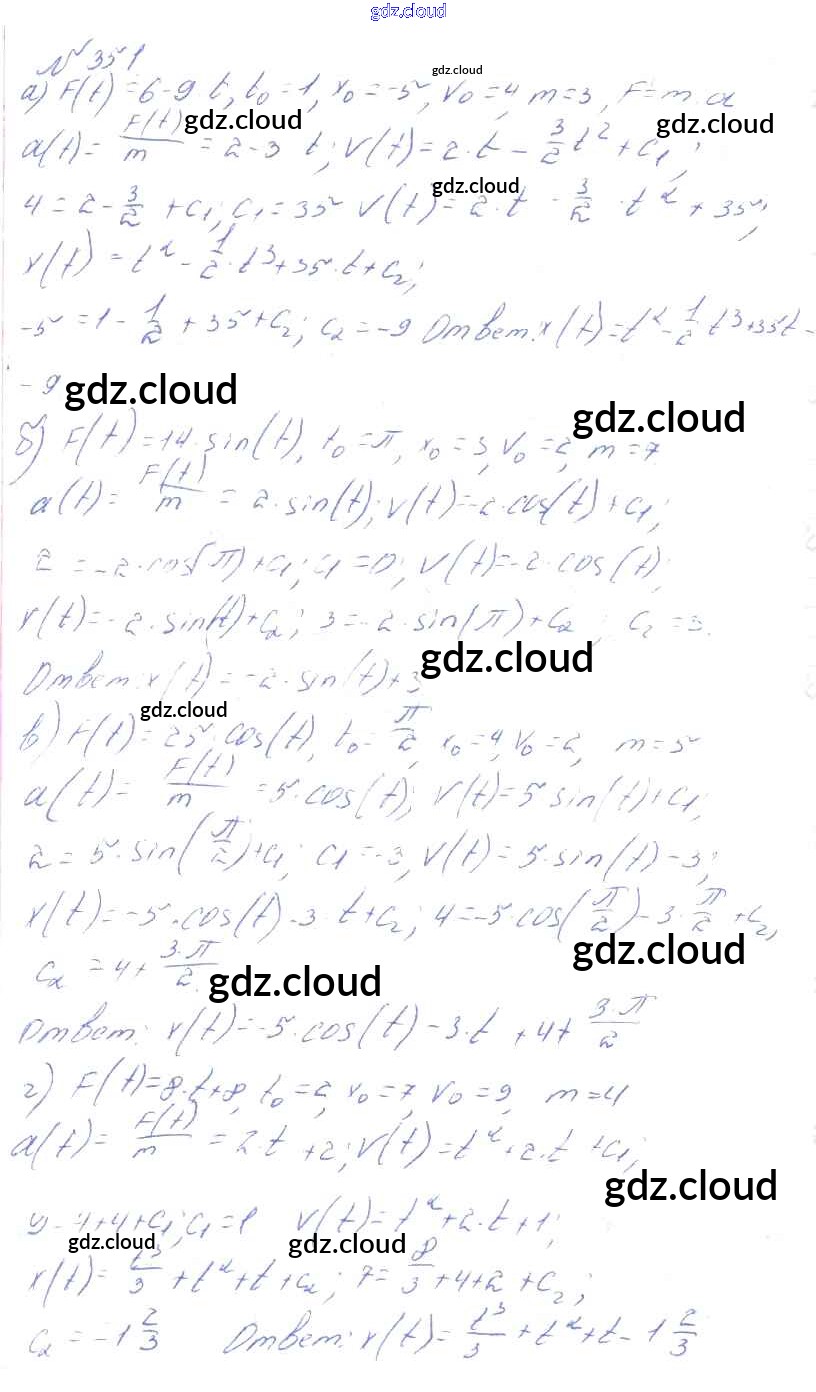 gdz.cloud
№ 351
gdz.cloud
а) F(t) = 6-9·t, t₀ = 1, x₀ = -5, v₀ = 4, m = 3, F = m·a
a(t) = F(t)/m = 2-3 t; v(t) = 2·t - 3/2 t² + C₁;
gdz.cloud gdz.cloud
4 = 2 - 3/2 + C₁; C₁ = 35 v(t) = 2·t - 3/2 · t² + 35;
gdz.cloud
x(t) = t² - 1/2·t³ + 35·t + C₂;
-5 = 1 - 1/2 + 35 + C₂; C₂ = -9 Ответ: x(t) = t² - 1/2 t³ + 35t -
- 9 gdz.cloud
gdz.cloud
б) F(t) = 14·sin(t), t₀ = π, x₀ = 3, v₀ = 2, m = 7
a(t) = F(t)/m = 2·sin(t); v(t) = -2·cos(t) + C₁;
2 = -2·cos(π) + C₁; C₁ = 0; v(t) = -2·cos(t);
x(t) = -2·sin(t) + C₂; 3 = -2·sin(π) + C₂; C₂ = 3.
gdz.cloud
Ответ: x(t) = -2·sin(t) + 3
gdz.cloud
в) F(t) = 25·cos(t), t₀ = π/2, x₀ = 4, v₀ = 2, m = 5
a(t) = F(t)/m = 5·cos(t); v(t) = 5 sin(t) + C₁;
2 = 5·sin(π/2) + C₁; C₁ = -3, v(t) = 5·sin(t) - 3;
x(t) = -5·cos(t) - 3·t + C₂; 4 = -5·cos(π/2) - 3·π/2 + C₂,
gdz.cloud
C₂ = 4 + 3·π/2
gdz.cloud
Ответ: x(t) = -5·cos(t) - 3·t + 4 + 3·π/2
г) F(t) = 8·t + 8, t₀ = 2, x₀ = 7, v₀ = 9, m = 4
a(t) = F(t)/m = 2·t + 2; v(t) = t² + 2·t + C₁;
gdz.cloud
9 = 4 + 4 + C₁; C₁ = 1 v(t) = t² + 2·t + 1;
gdz.cloud gdz.cloud
x(t) = t³/3 + t² + t + C₂; 7 = 8/3 + 4 + 2 + C₂;
C₂ = -1 2/3 Ответ: x(t) = t³/3 + t² + t - 1 2/3